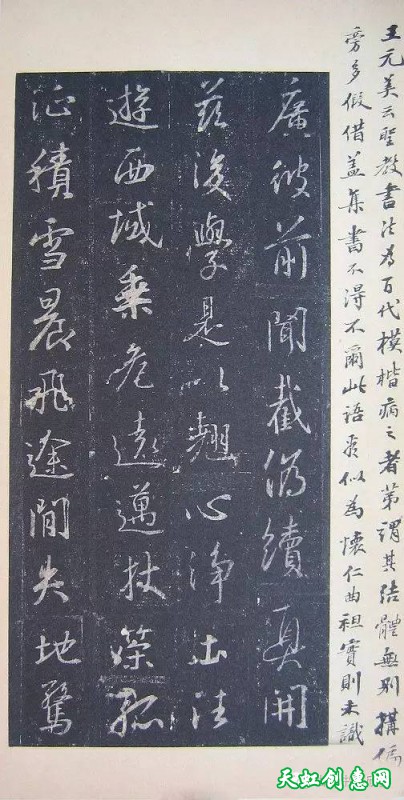 王元美云聖教書法為百代模楷病之者第謂其結體無別搆偏
旁多假借蓋集書不得不爾此語頗似為懷仁曲袒實則未識
廣彼前聞截偽續真開
茲後學是以翹心淨土法
遊西域乘危遠邁杖策孤
征積雪晨飛途閒失地驚
天虹创惠网